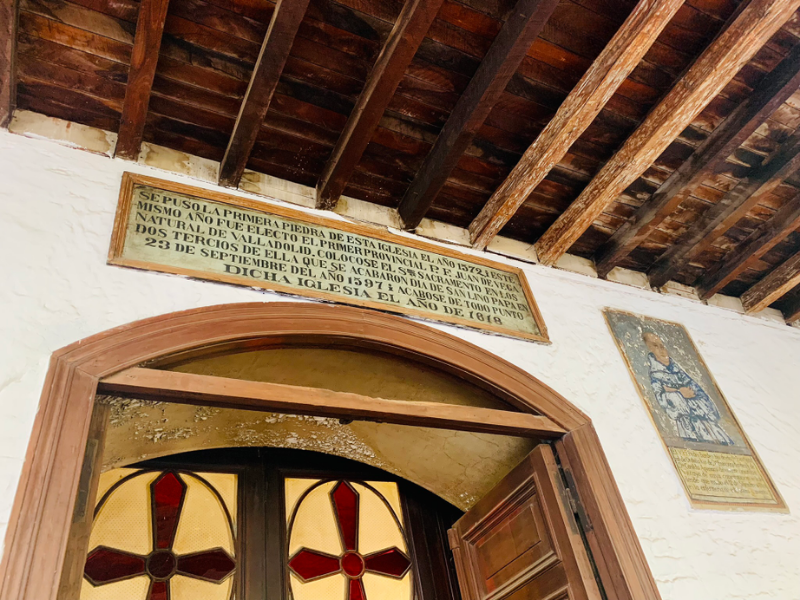 SE PUSO LA PRIMERA PIEDRA DE ESTA IGLESIA EL AÑO 1572, I ESTE
MISMO AÑO FUE ELECTO EL PRIMER PROVINCIAL P. F. JUAN DE VERA
NATURAL DE VALLADOLID. COLOCOSE EL SMO SACRAMENTO EN LOS
DOS TERCIOS DE ELLA QUE SE ACABARON DIA DE SAN LINO PAPA EN
23 DE SEPTIEMBRE DEL AÑO 1597 I ACABOSE DE TODO PUNTO
DICHA IGLESIA EL AÑO DE 1618